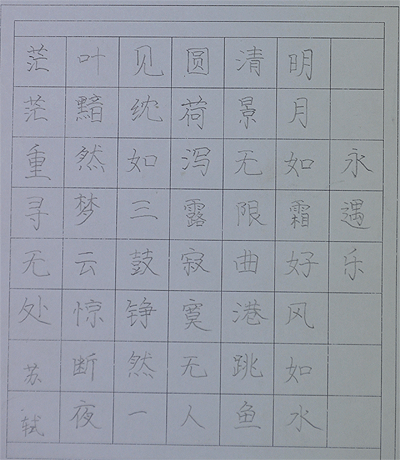 永遇乐
明月如霜好风如水
清景无限曲港跳鱼
圆荷泻露寂寞无人
见𬘘如三鼓铮然一
叶黯然梦云惊断夜
茫茫重寻无处苏轼